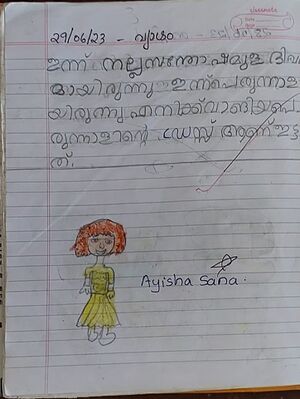 classmate
Date
Page
29/06/23 - വ്യാഴം
ഇന്ന് നല്ല സന്തോഷമുള്ള ദിവ
മായിരുന്നു ഇന്ന് പെരുന്നാള
യിരുന്നു എനിക്ക് വാങ്ങിയ പെ
രുന്നാളിന്റെ ഡ്രസ്സ് ആണ് ഇട്ട
ത്.
Ayisha Sana.